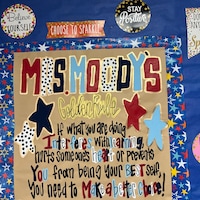 Believe in YOURSELF
CHOOSE TO SPARKLE
STAY
Positive
MS. MOODY'S
Golden Rule
If what you are doing
Interferes with learning,
hurts someone's heart or prevents
You from being your BEST self,
You need to Make a better choice!